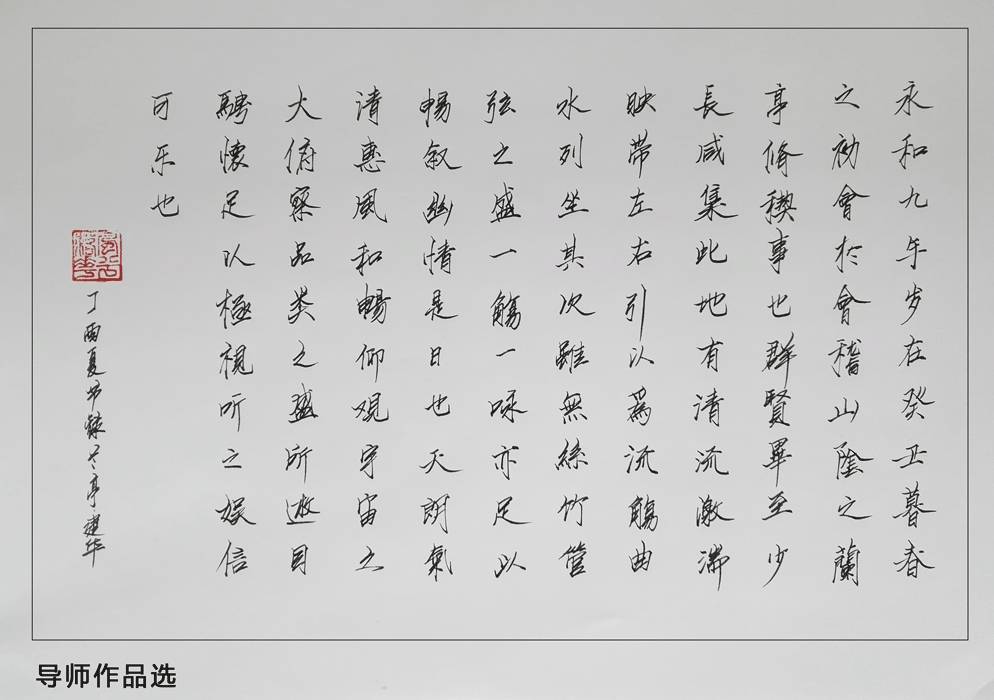 永和九年岁在癸丑暮春
之初會於會稽山陰之蘭
亭脩稧事也群賢畢至少
長咸集此地有清流激湍
映带左右引以為流觴曲
水列坐其次雖無絲竹管
弦之盛一觴一咏亦足以
暢叙幽情是日也天朗氣
清惠風和暢仰观宇宙之
大俯察品类之盛所遊目
騁懷足以極視听之娱信
可乐也
丁酉夏节録兰亭建华
导师作品选